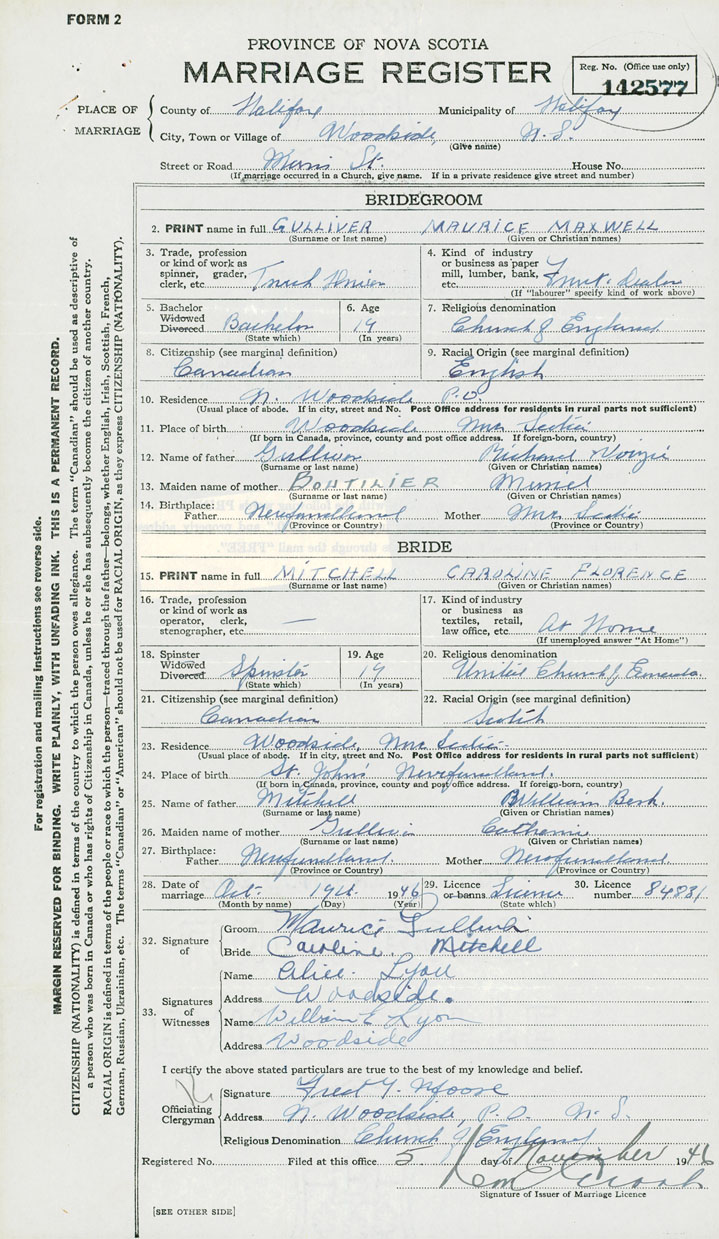 FORM 2
PROVINCE OF NOVA SCOTIA
MARRIAGE REGISTER
Reg. No. (Office use only)
142577
PLACE OF MARRIAGE
County of Halifax Municipality of Halifax
City, Town or Village of Woodside, N. S.
(Give name)
Street or Road St. House No.
(If marriage occurred in a Church, give name. If in a private residence give street and number)
BRIDEGROOM
2. PRINT name in full GULLIVER MAURICE MAXWELL
(Surname or last name) (Given or Christian names)
3. Trade, profession or kind of work as spinner, grader, clerk, etc. Truck Driver
4. Kind of industry or business as paper mill, lumber, bank, etc. Dealer
(If "labourer" specify kind of work above)
5. Bachelor Widowed Divorced Bachelor
(State which)
6. Age 19
(In years)
7. Religious denomination
Church of England
8. Citizenship (see marginal definition)
Canadian
9. Racial Origin (see marginal definition)
English
10. Residence N. Woodside P.O.
(Usual place of abode. If in city, street and No. Post Office address for residents in rural parts not sufficient)
11. Place of birth Woodside Nova Scotia
(If born in Canada, province, county and post office address. If foreign-born, country)
12. Name of father Gulliver Richard
(Surname or last name) (Given or Christian names)
13. Maiden name of mother BOUTILIER Muriel
(Surname or last name) (Given or Christian names)
14. Birthplace:
Father Newfoundland Mother Nova Scotia
(Province or Country) (Province or Country)
BRIDE
15. PRINT name in full MITCHELL CAROLINE FLORENCE
(Surname or last name) (Given or Christian names)
16. Trade, profession or kind of work as operator, clerk, stenographer, etc. —
17. Kind of industry or business as textiles, retail, law office, etc. At Home
(If unemployed answer "At Home")
18. Spinster Widowed Divorced Spinster
(State which)
19. Age 19
(In years)
20. Religious denomination
United Church of Canada.
21. Citizenship (see marginal definition)
Canadian
22. Racial Origin (see marginal definition)
Scotch
23. Residence Woodside, Nova Scotia
(Usual place of abode. If in city, street and No. Post Office address for residents in rural parts not sufficient)
24. Place of birth St. John's Newfoundland.
(If born in Canada, province, county and post office address. If foreign-born, country)
25. Name of father Mitchell William
(Surname or last name) (Given or Christian names)
26. Maiden name of mother Gulliver Catherine
(Surname or last name) (Given or Christian names)
27. Birthplace:
Father Newfoundland. Mother Newfoundland
(Province or Country) (Province or Country)
28. Date of marriage Oct. 19th 1946
(Month by name) (Day) (Year)
29. Licence or banns Licence
(State which)
30. Licence number 84831
32. Signature of
Groom Maurice Gulliver
Bride Caroline Mitchell
33. Signatures of Witnesses
Name Alice Lyon
Address Woodside.
Name William E Lyon
Address Woodside
I certify the above stated particulars are true to the best of my knowledge and belief.
Officiating Clergyman
Signature Fred Y. Moore
Address N. Woodside, P.O. N. S.
Religious Denomination Church of England
Registered No. Filed at this office 5 day of November 1946
Signature of Issuer of Marriage Licence
[SEE OTHER SIDE]
For registration and mailing instructions see reverse side.
MARGIN RESERVED FOR BINDING. WRITE PLAINLY, WITH UNFADING INK. THIS IS A PERMANENT RECORD.
CITIZENSHIP (NATIONALITY) is defined in terms of the country to which the person owes allegiance. The term "Canadian" should be used as descriptive of
a person who was born in Canada or who has rights of Citizenship in Canada, unless he or she has subsequently become the citizen of another country.
RACIAL ORIGIN is defined in terms of the people or race to which the person—traced through the father—belongs, whether English, Irish, Scottish, French,
German, Russian, Ukrainian, etc. The terms "Canadian" or "American" should not be used for RACIAL ORIGIN, as they express CITIZENSHIP (NATIONALITY).